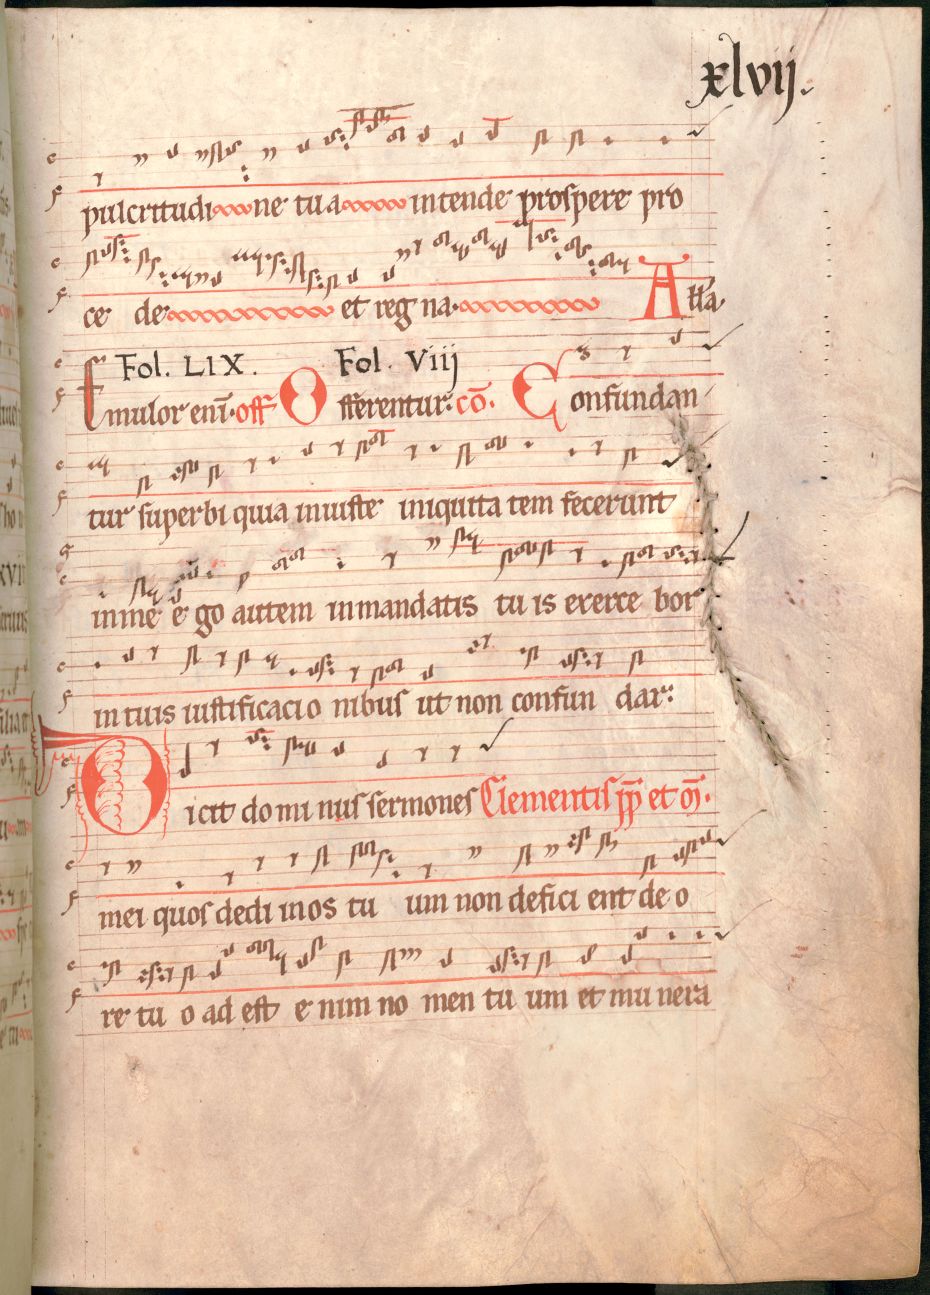 xlvij.
pulcritudi ne tu a intende prospere pro
ce de et reg na. All'a
Fol. LIX. Fol. Viij
Emulor eni. off Offerentur. co. Confundan
tur superbi quia iniuste iniquita tem fecerunt
inme e go autem inmandatis tu is exerce bor
in tuis iustificacio nibus ut non confun dar:
Dicit do mi nus sermones Clementis pp et m.
mei quos dedi inos tu um non defici ent de o
re tu o ad est e nim no men tu um et mu nera